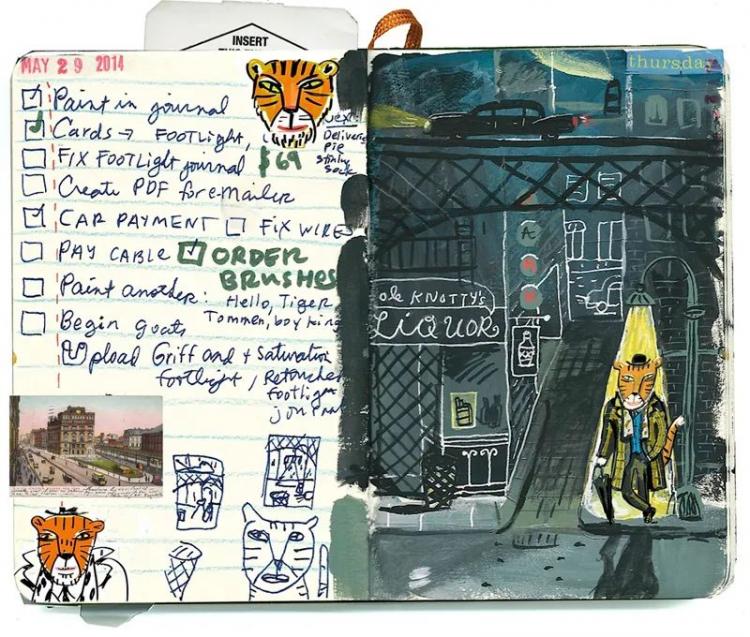 INSERT
MAY 29 2014
thursday
Paint in journal
Cards → FOOTLIGHT,
$69
Deliveries
Pie
Stinky
Sock
FIX FOOTLIGHT journal
Create PDF for emailer
CAR PAYMENT FIX WIRES
PAY CABLE ORDER
BRUSHES
Paint another: Hello, Tiger
Tommen, boy king
Begin goats
Upload Griff and + Saturation
footlight / Retouched
footlight
journal
ole KNOTTY'S
LiQUOR